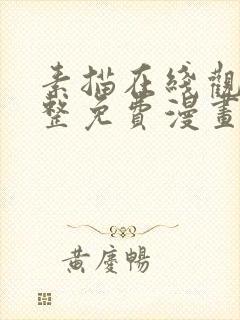 素描在线觀
整免費漫畫
黃慶暢